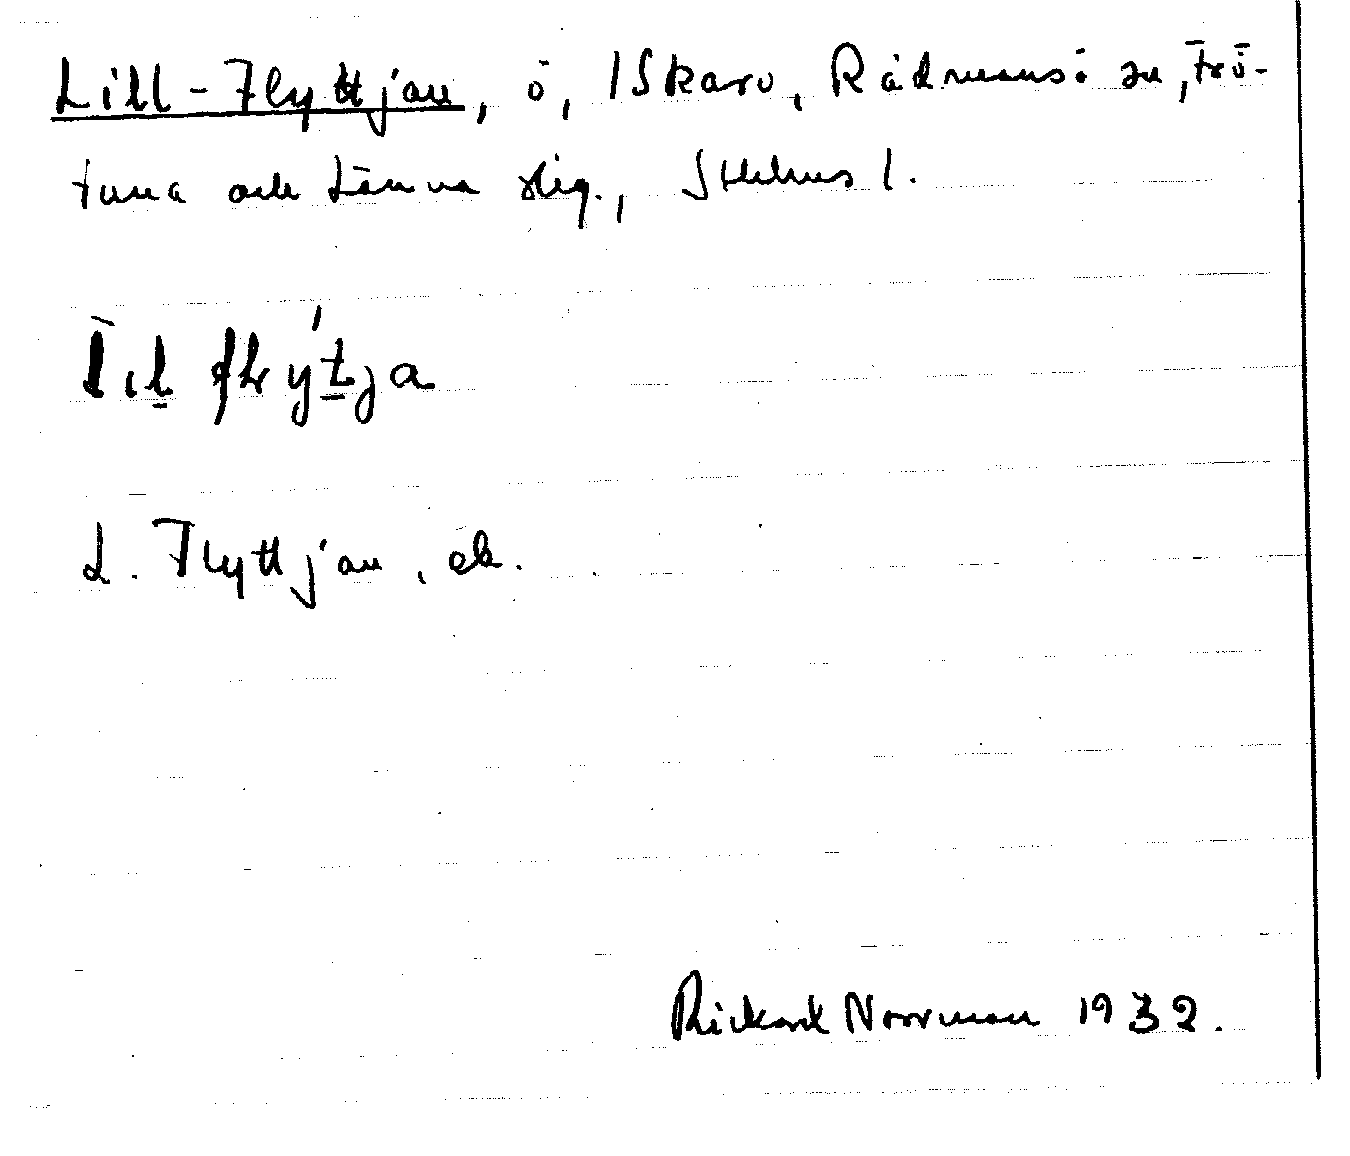 Lill-Flyttjan, ö, I Skavo, Rådmansö sn, Frö-
tuna och Länna skg., Sthlms l.
lıl flrýtja
L. Flyttjan, ek.
Rickard Norrman 1932.